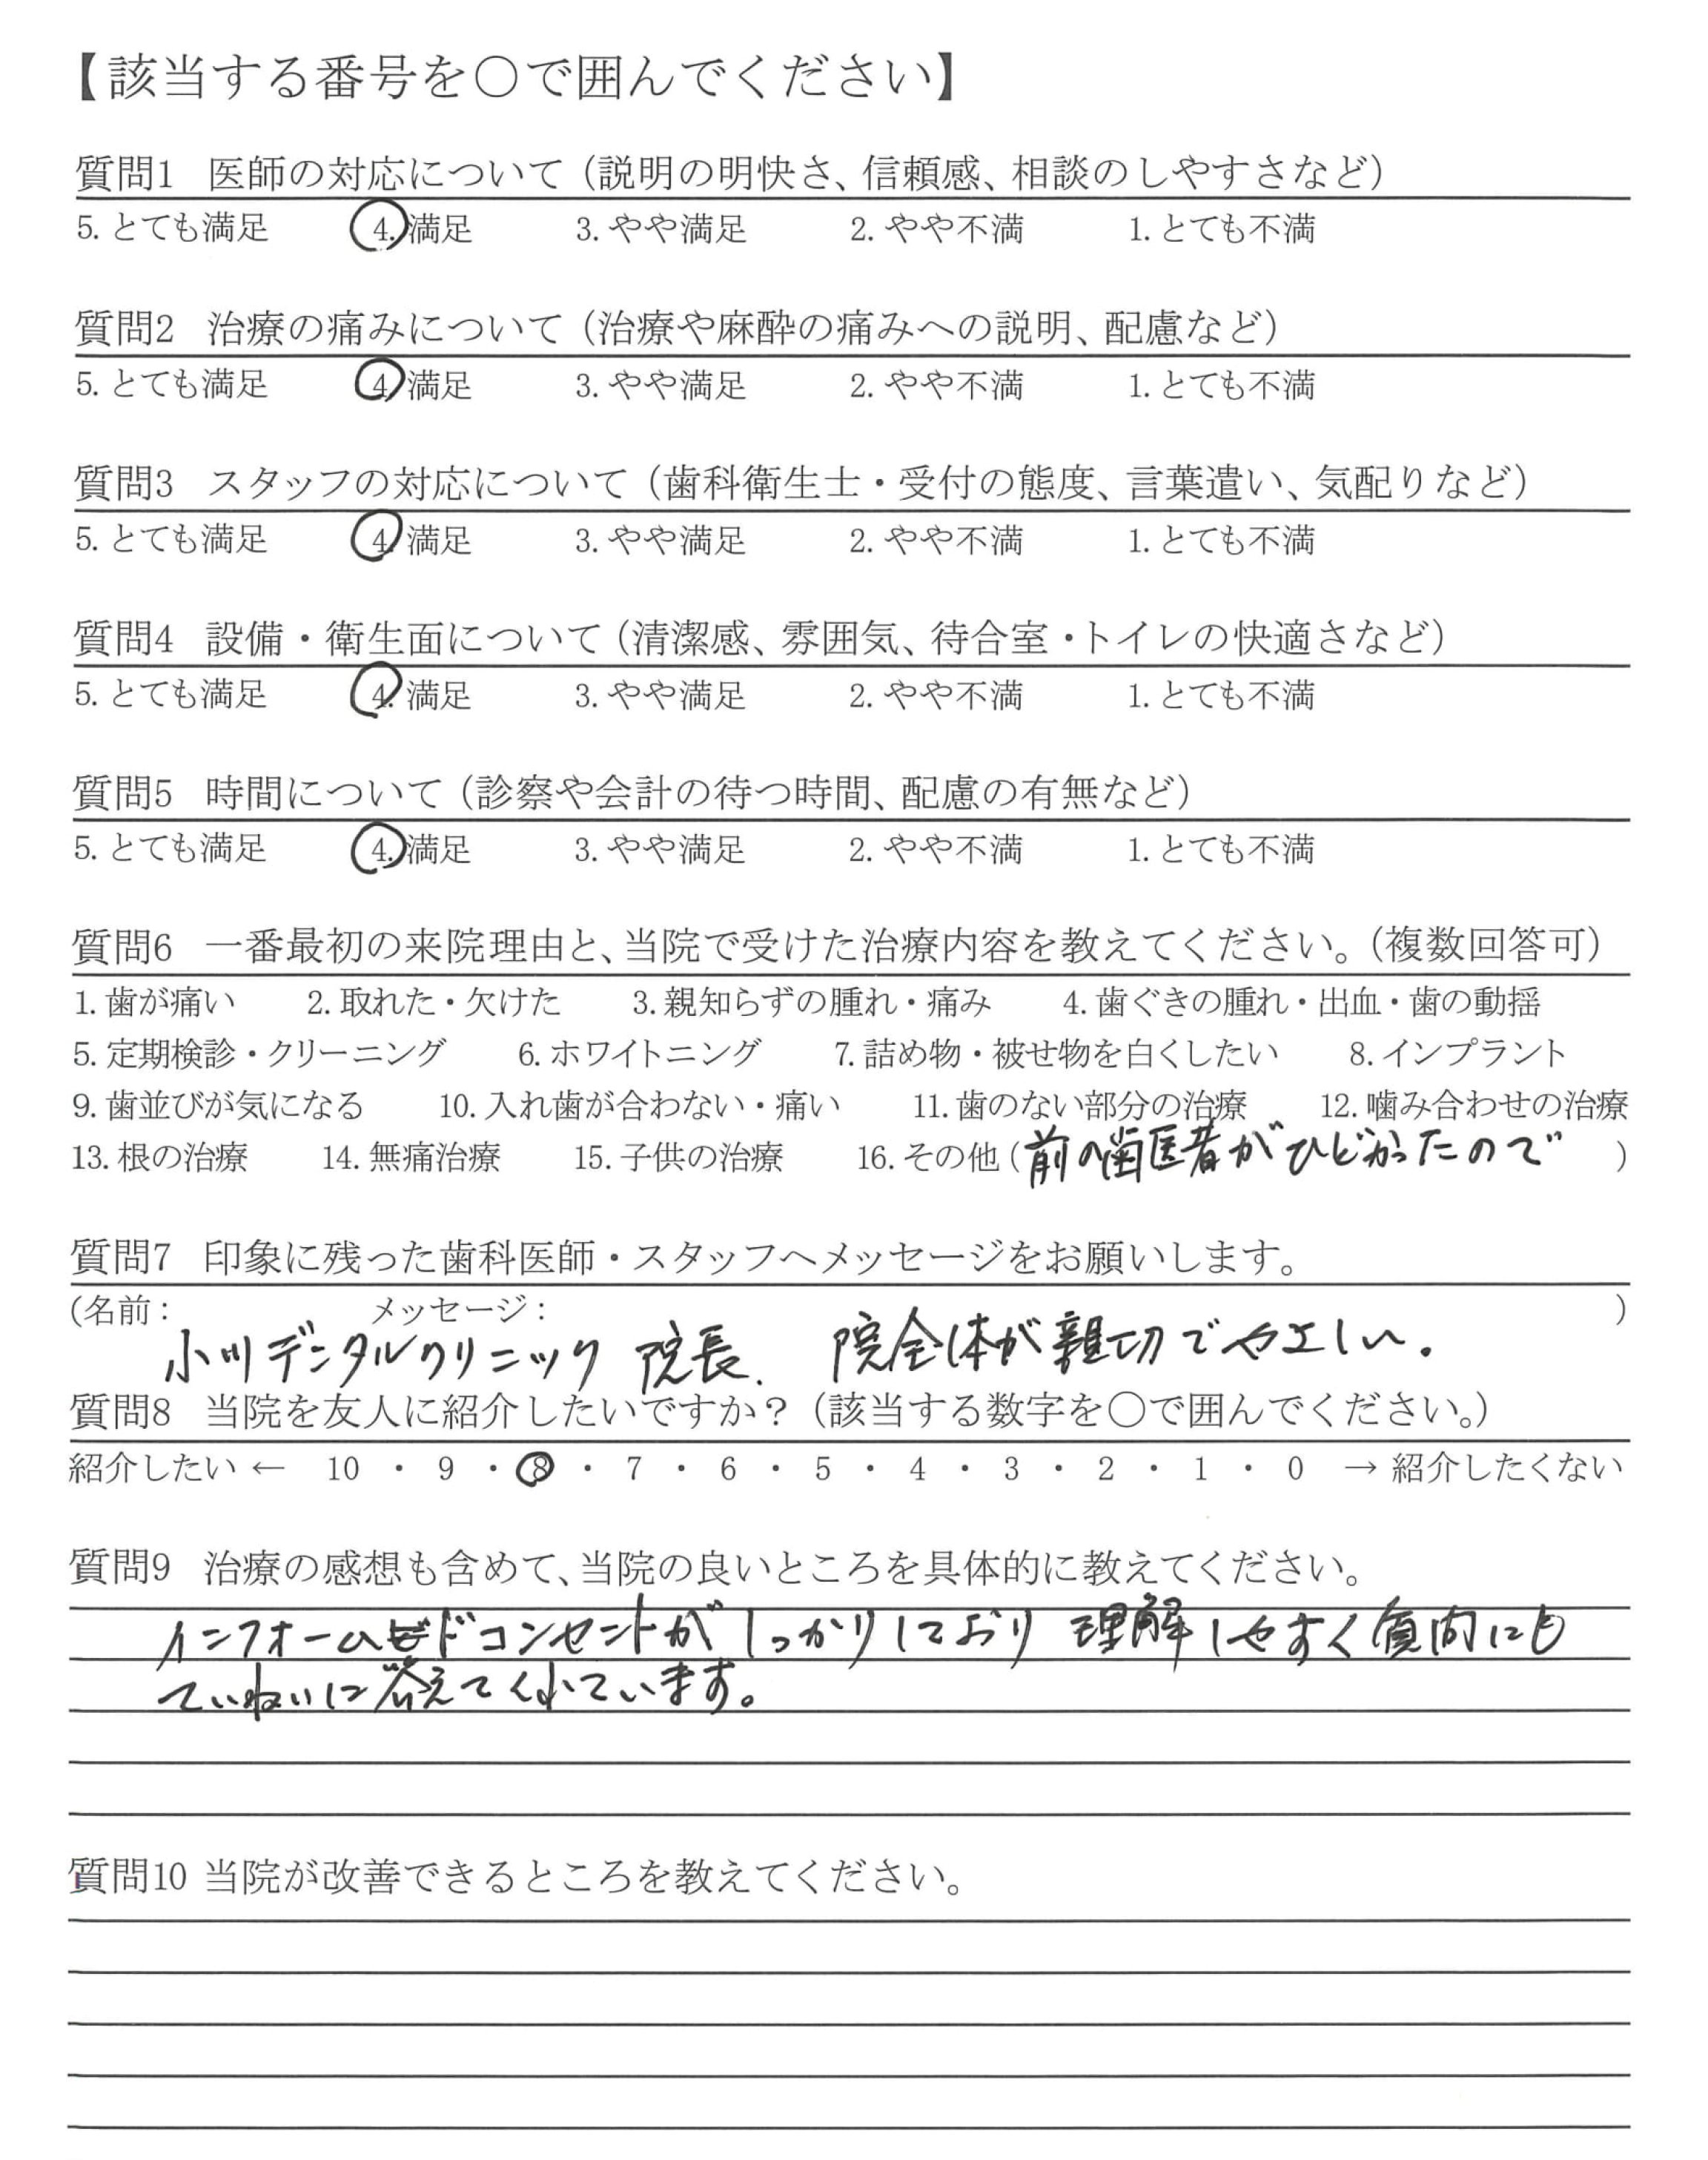 【該当する番号を○で囲んでください】
質問1 医師の対応について（説明の明快さ、信頼感、相談のしやすさなど）
5. とても満足 4. 満足 3. やや満足 2. やや不満 1. とても不満
質問2 治療の痛みについて（治療や麻酔の痛みへの説明、配慮など）
5. とても満足 4. 満足 3. やや満足 2. やや不満 1. とても不満
質問3 スタッフの対応について（歯科衛生士・受付の態度、言葉遣い、気配りなど）
5. とても満足 4. 満足 3. やや満足 2. やや不満 1. とても不満
質問4 設備・衛生面について（清潔感、雰囲気、待合室・トイレの快適さなど）
5. とても満足 4. 満足 3. やや満足 2. やや不満 1. とても不満
質問5 時間について（診察や会計の待つ時間、配慮の有無など）
5. とても満足 4. 満足 3. やや満足 2. やや不満 1. とても不満
質問6 一番最初の来院理由と、当院で受けた治療内容を教えてください。（複数回答可）
1. 歯が痛い 2. 取れた・欠けた 3. 親知らずの腫れ・痛み 4. 歯ぐきの腫れ・出血・歯の動揺
5. 定期検診・クリーニング 6. ホワイトニング 7. 詰め物・被せ物を白くしたい 8. インプラント
9. 歯並びが気になる 10. 入れ歯が合わない・痛い 11. 歯のない部分の治療 12. 噛み合わせの治療
13. 根の治療 14. 無痛治療 15. 子供の治療 16. その他（前の歯医者がひどかったので）
質問7 印象に残った歯科医師・スタッフへメッセージをお願いします。
（名前： メッセージ： ）
小川デンタルクリニック 院長. 院全体が親切でやさしい。
質問8 当院を友人に紹介したいですか？（該当する数字を○で囲んでください。）
紹介したい ← 10 ・ 9 ・ 8 ・ 7 ・ 6 ・ 5 ・ 4 ・ 3 ・ 2 ・ 1 ・ 0 → 紹介したくない
質問9 治療の感想も含めて、当院の良いところを具体的に教えてください。
インフォームドコンセントがしっかりしており 理解しやすく質問にも
ていねいに答えてくれています。
質問10 当院が改善できるところを教えてください。